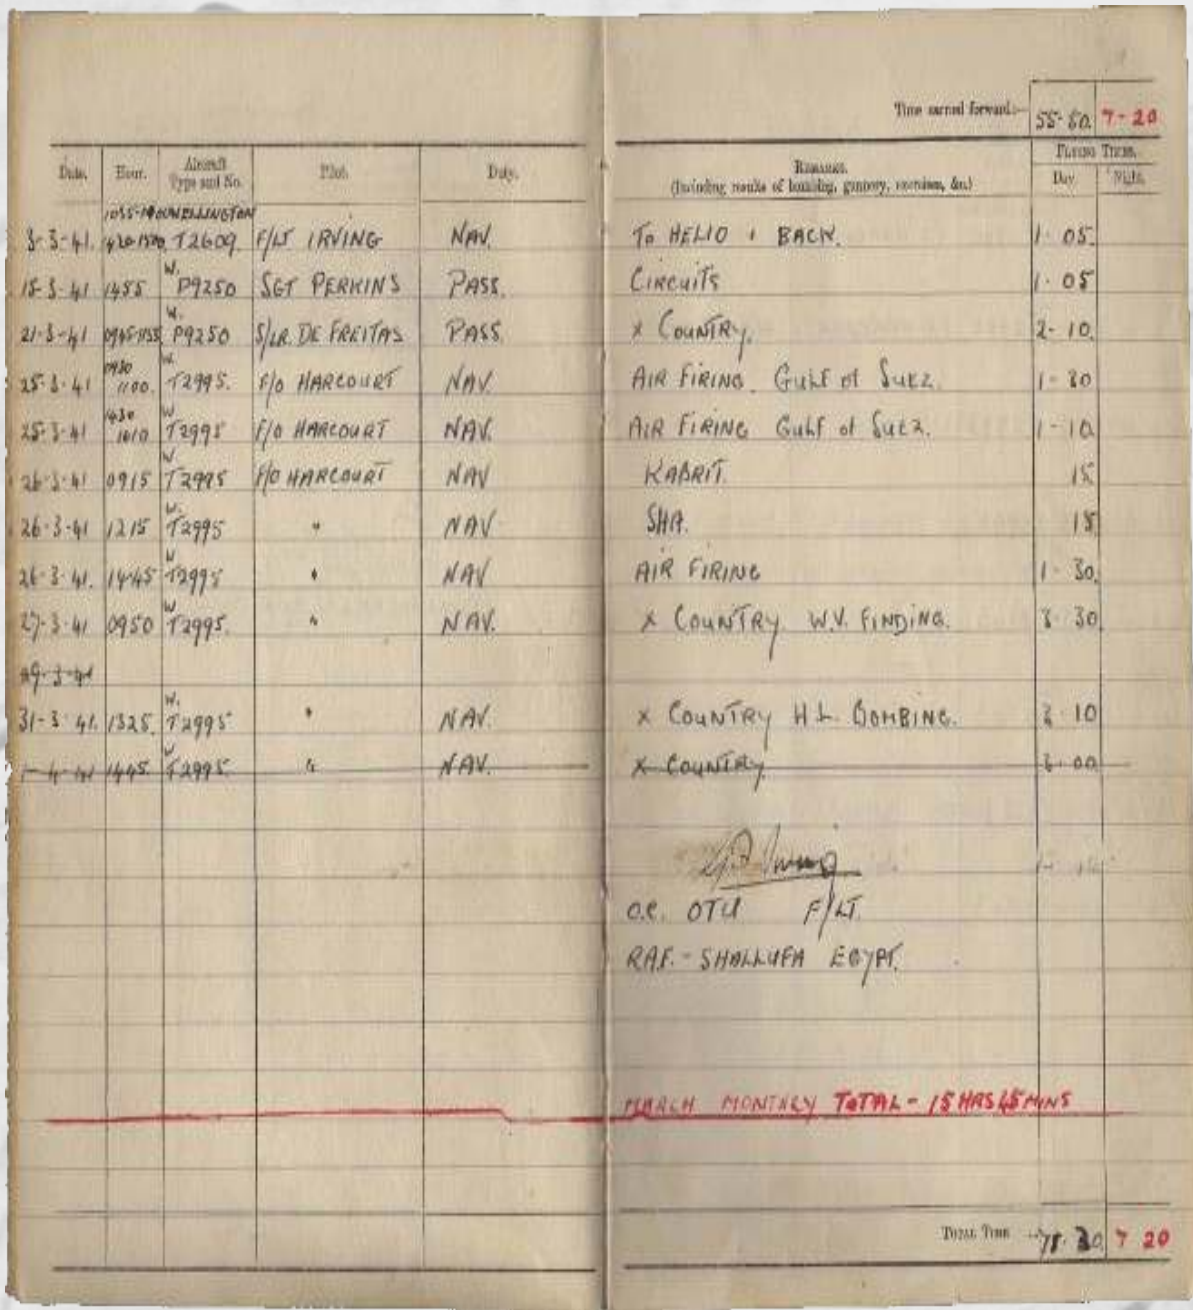 Time carried forward:— 55-50 7-20
Date. Hour. Aircraft Type and No. Pilot. Duty. REMARKS. (Including results of bombing, gunnery, exercises, &c.) FLYING TIMES. Day. Night.
WELLINGTON
3-3-41. T2609. F/LT IRVING NAV. To HELIO & BACK. 1-05.
W.
15-3-41 1455 P9250 SGT PERKINS PASS. CIRCUITS 1-05
W.
21-3-41 0945-1155 P9250 S/LR. DE FREITAS PASS. X COUNTRY. 2-10.
0930 W.
25-3-41 1100. T2995. F/O HARCOURT NAV. AIR FIRING. GULF of SUEZ. 1-30
W
25-3-41 1610 T2995 F/O HARCOURT NAV. AIR FIRING GULF of SUEZ. 1-10
W.
26-3-41 0915 T2995 F/O HARCOURT NAV KABRIT. 15
W.
26-3-41 1215 T2995 " NAV SHA. 15
W
26-3-41. 1445 T2995 " NAV AIR FIRING 1-30.
W
27-3-41 0950 T2995. " NAV. X COUNTRY W.V. FINDING. 3-30
29-3-41
W.
31-3-41. 1325 T2995 " NAV. X COUNTRY H.L. BOMBING. 3-10
W
1-4-41 1445. T2995. " NAV. X COUNTRY 3-00
O.C. OTU F/LT.
RAF.- SHALLUFA EGYPT.
MARCH MONTHLY TOTAL - 15 HRS 45 MINS
TOTAL TIME 7 20